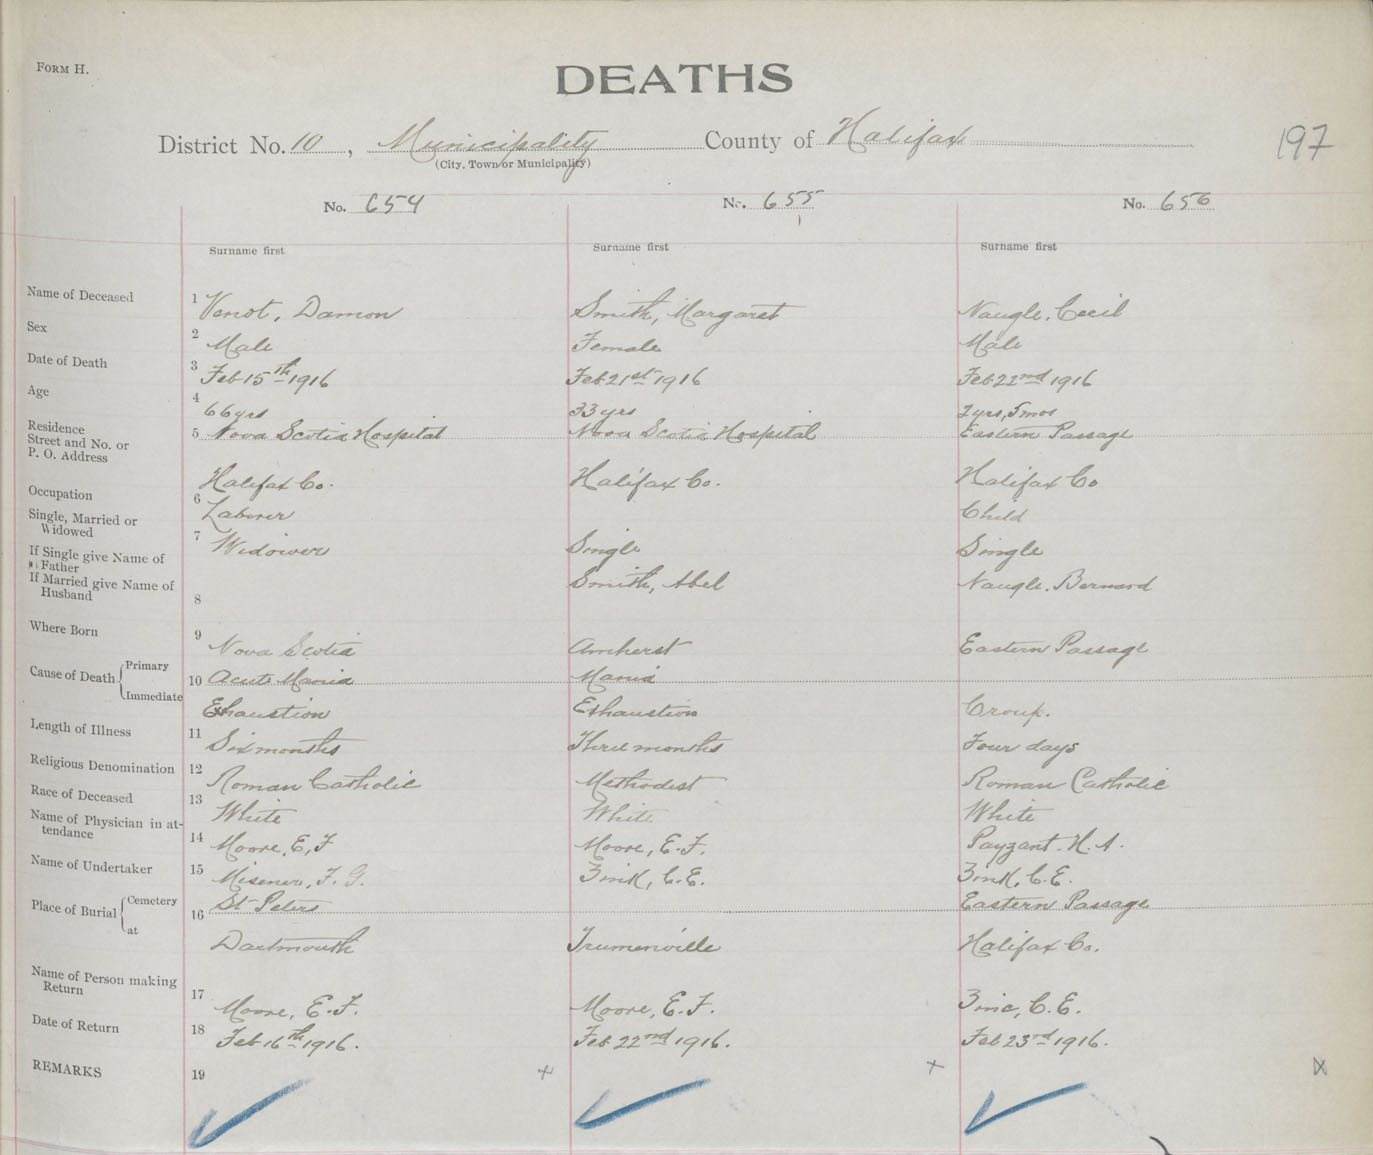 FORM H.
DEATHS
District No. 10, Municipality County of Halifax 197
(City, Town or Municipality)
No. 654 No. 655 No. 656
Surname first Surname first Surname first
Name of Deceased 1 Venot, Damon Smith, Margaret Naugle, Cecil
Sex 2 Male Female Male
Date of Death 3 Feb 15th 1916 Feb 21st 1916 Feb 22nd 1916
Age 4 66 yrs 33 yrs 2 yrs, 5 mos
Residence
Street and No. or 5 Nova Scotia Hospital Nova Scotia Hospital Eastern Passage
P. O. Address
Halifax Co. Halifax Co. Halifax Co
Occupation 6 Laborer Child
Single, Married or
Widowed 7 Widower Single Single
If Single give Name of
Father
If Married give Name of Smith, Abel Naugle, Bernard
Husband 8
Where Born 9 Nova Scotia Amherst Eastern Passage
Cause of Death Primary 10 Acute Mania Mania
Immediate Exhaustion Exhaustion Croup.
Length of Illness 11 Six months Three months Four days
Religious Denomination 12 Roman Catholic Methodist Roman Catholic
Race of Deceased 13 White White White
Name of Physician in at-
tendance 14 Moore, E, F Moore, E. F. Payzant. H. A.
Name of Undertaker 15 Misener, F. G. Zink, C. E. Zink, C. E.
Place of Burial Cemetery 16 St Peters Eastern Passage
at Dartmouth Truemanville Halifax Co.
Name of Person making
Return 17 Moore, E. F. Moore, E. F. Zinc, C. E.
Date of Return 18 Feb 16th 1916. Feb 22nd 1916. Feb 23rd 1916.
REMARKS 19 x x x